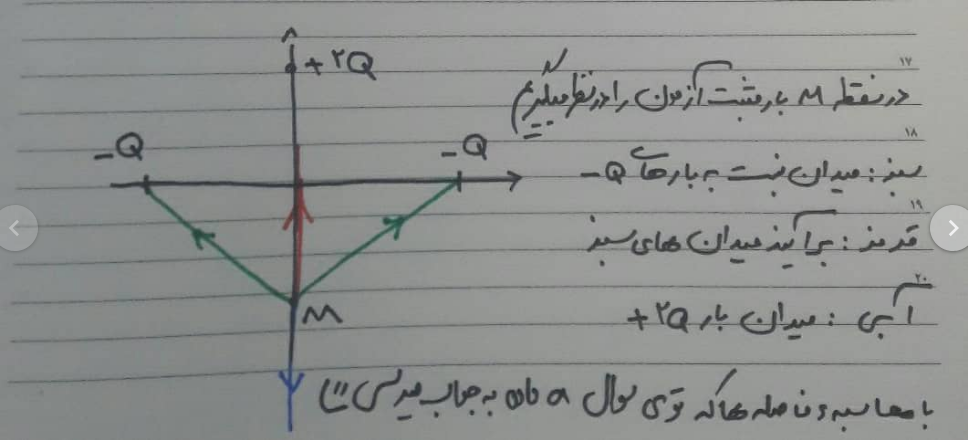 +۲Q
۱۷
در نقطه M بار مثبت آزمون را در نظر میگیریم
-Q
-Q
۱۸
سبز: میدان نسبت به بارهای Q-
۱۹
قرمز: برآیند میدان های سبز
۲۰
آبی: میدان بار ۲Q+
M
با محاسبه و فاصله ها که توی سوال a داده به جواب میرسی